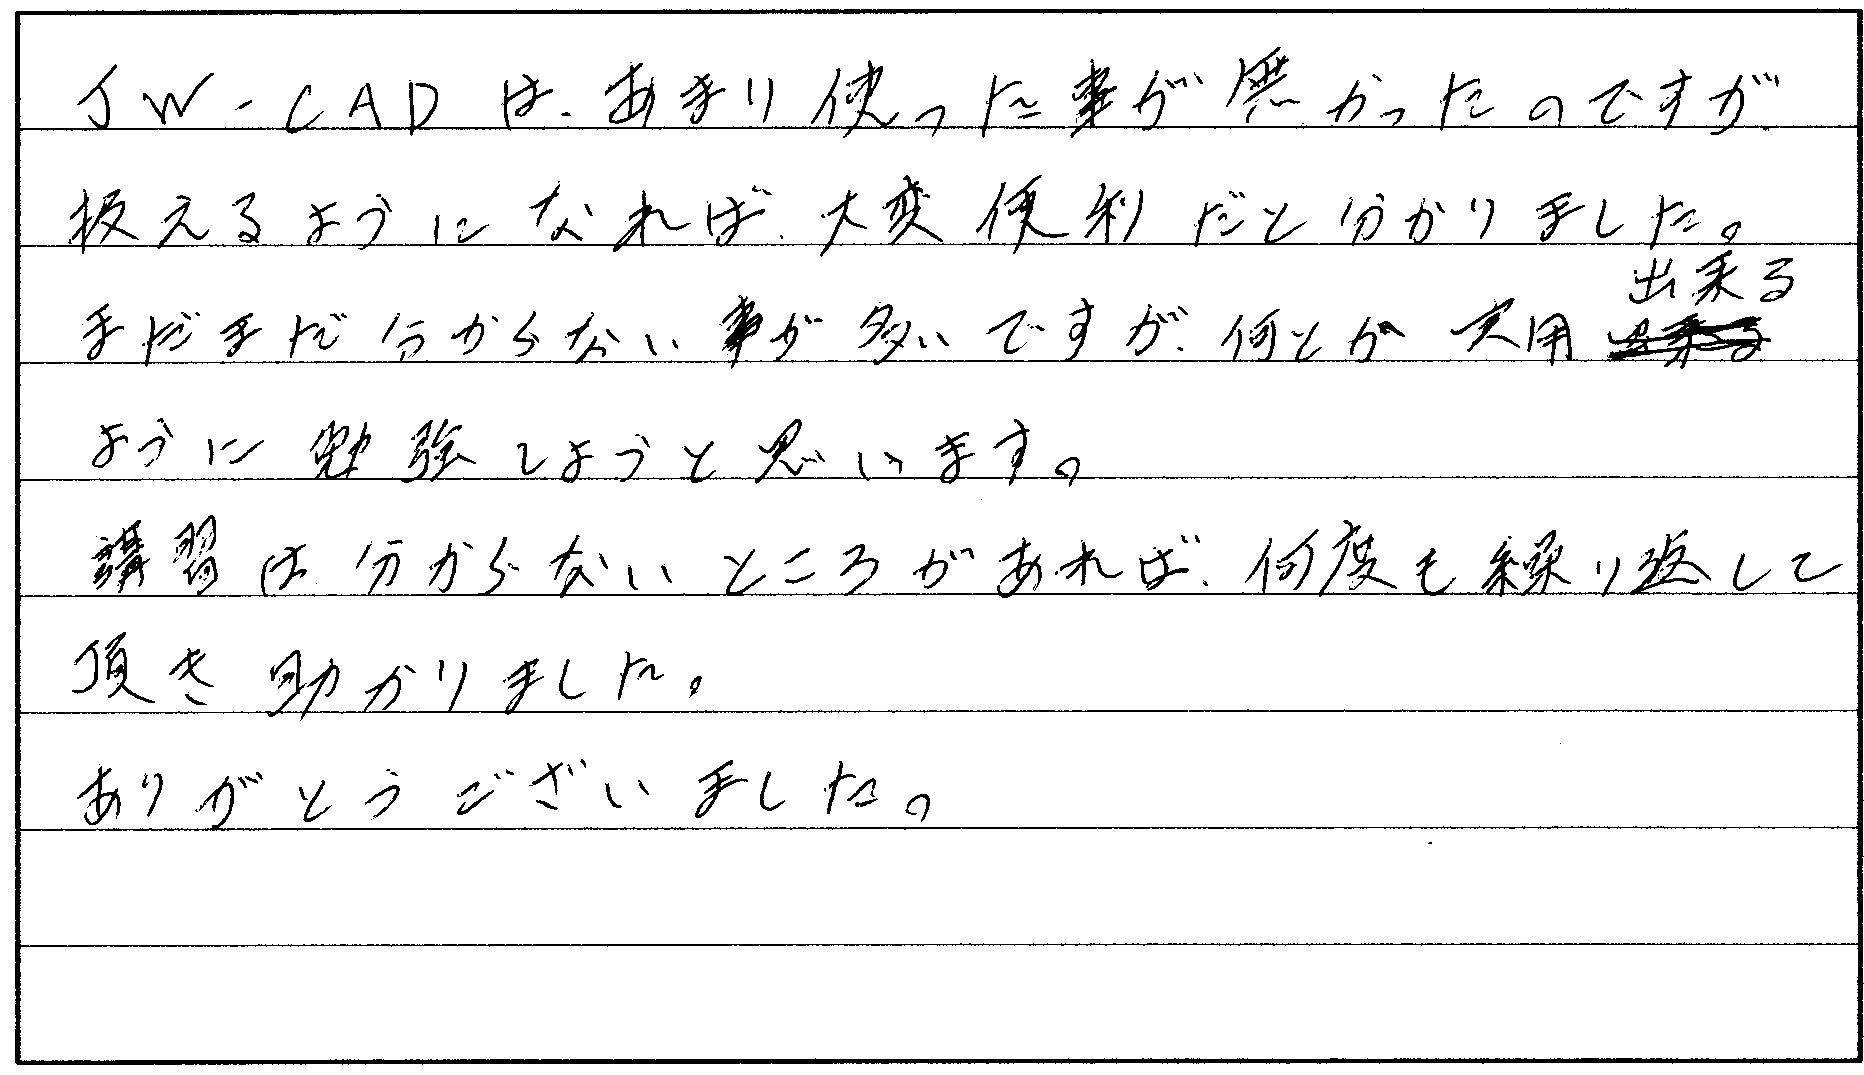 JW-CADは、あまり使った事が無かったのですが
扱えるようになれば、大変便利だと分かりました。
まだまだ分からない事が多いですが、何とか実用出来る
ように勉強しようと思います。
講習は分からないところがあれば、何度も繰り返して
頂き助かりました。
ありがとうございました。